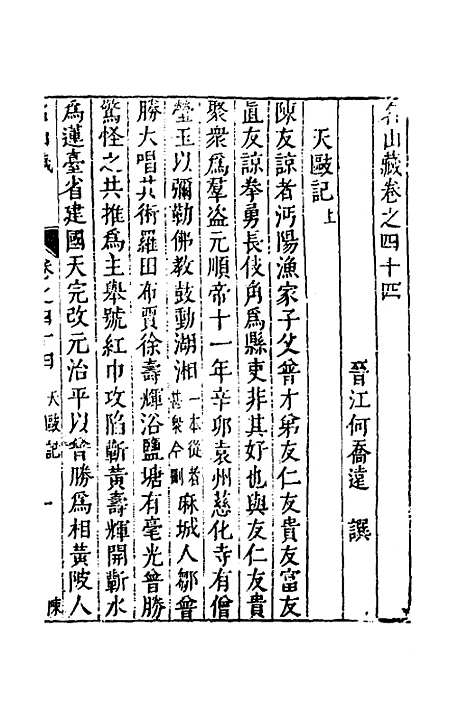 名山藏卷之四十四
晉江何喬遠 譔
天敺記上
陳友諒者沔陽漁家子父普才弟友仁友貴友富友
直友諒拳勇長伎角為縣吏非其好也與友仁友貴
聚衆為羣盜元順帝十一年辛卯袁州慈化寺有僧
瑩玉以彌勒佛教鼓動湖湘一本從者甚衆今刪麻城人鄒普
勝大唱其術羅田布賈徐壽輝浴鹽塘有毫光普勝
驚怪之共推為主舉號紅巾攻陷蘄黃壽輝開蘄水
為蓮臺省建國天完改元治平以普勝為相黃陂人
名山藏 卷之四十四 天敺記 一 陳